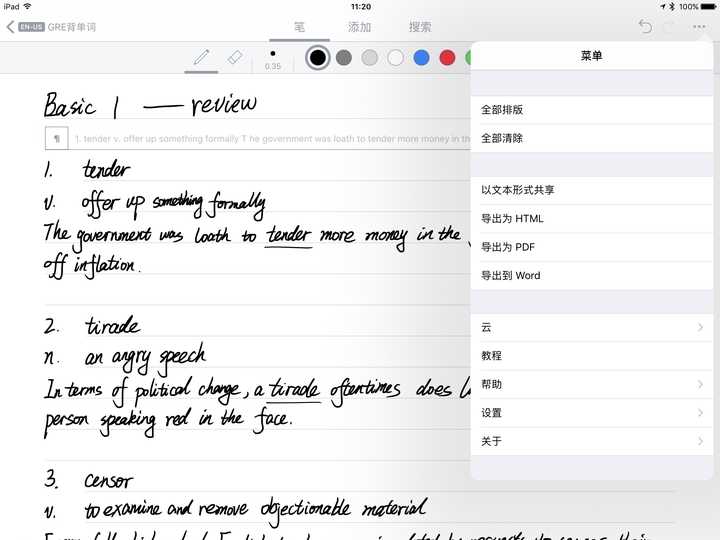 iPad 11:20 100%
EN-US GRE背单词 笔 添加 搜索
0.35
菜单
全部排版
全部清除
以文本形式共享
导出为 HTML
导出为 PDF
导出到 Word
云
教程
帮助
设置
关于
Basic 1 — review
¶ 1. tender v. offer up something formally T he government was loath to tender more money in th
1. tender
v. offer up something formally
The government was loath to tender more money in the
off inflation.
2. tirade
n. an angry speech
In terms of political change, a tirade oftentimes does
person speaking red in the face.
3. censor
v. to examine and remove objectionable material